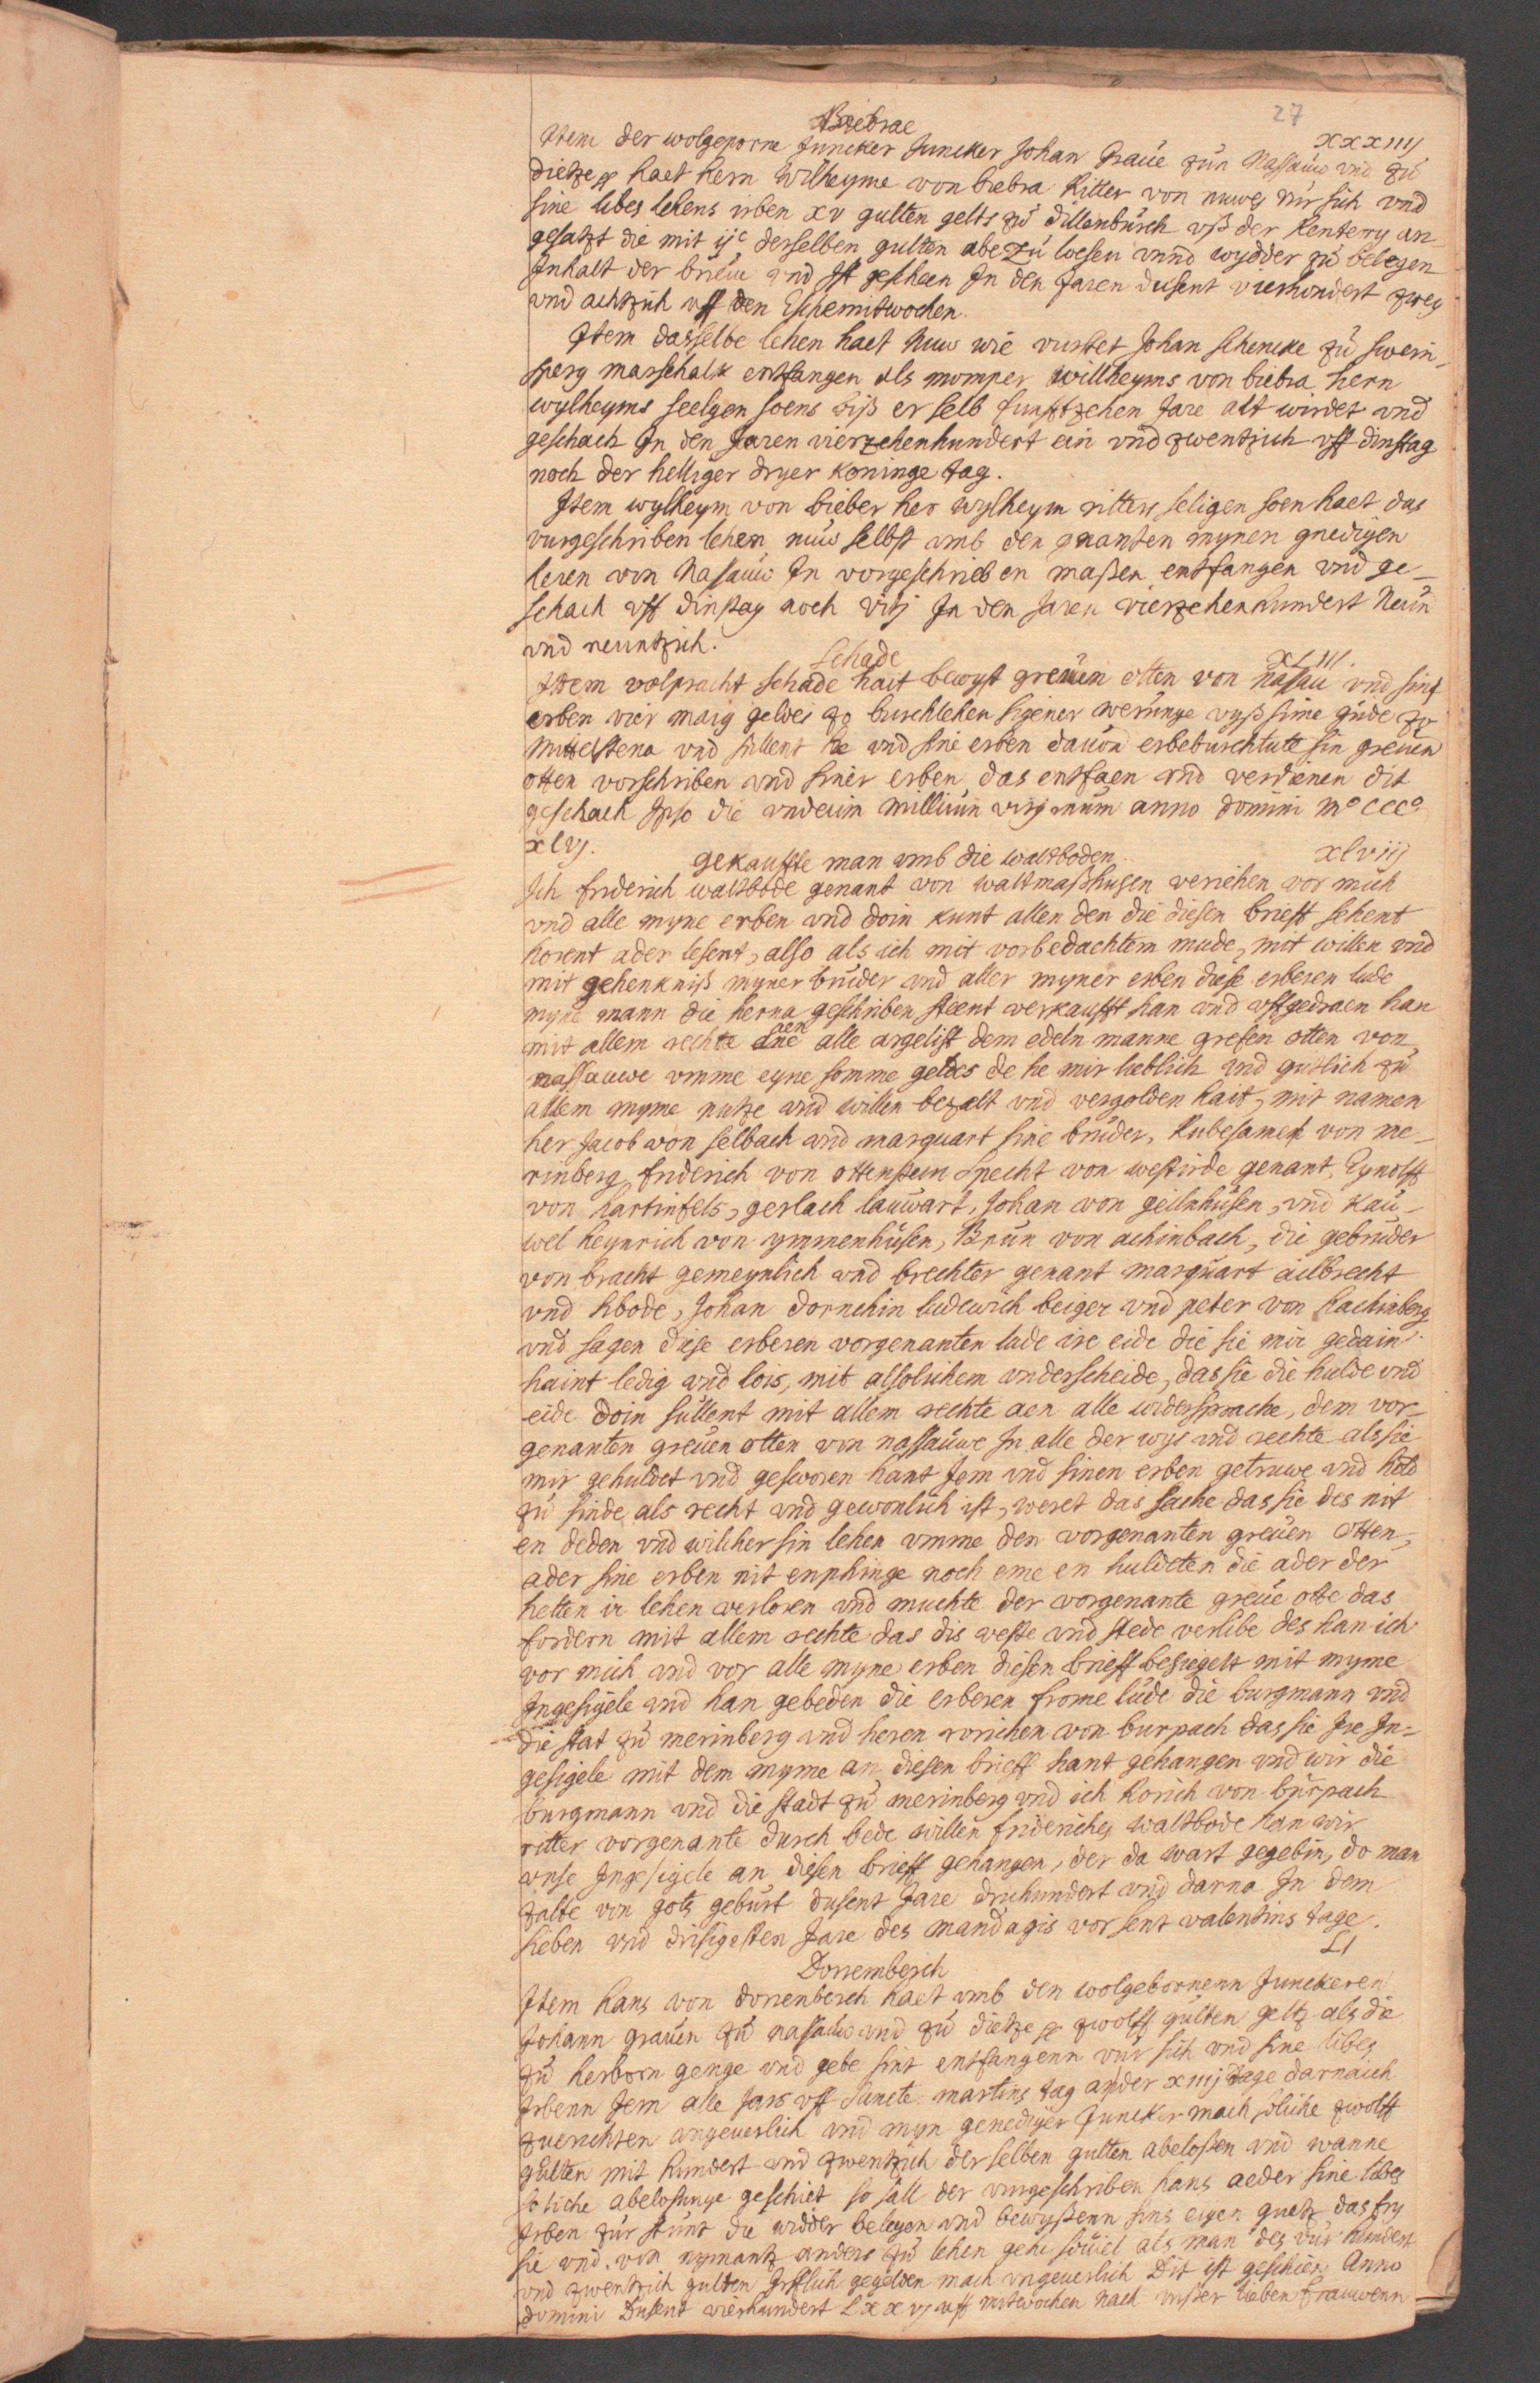 27
Biebrae
xxxiiij
Item der wolgeporne Juncker Juncker Johan Graue zun Nassauw vnd zu
dietze haet hern Wilheyme von biebra Ritter von nuwes vur sich vnd
sine libes lehens irben xv gulten gelts zu dillenbürch vß der Rentery an
gesatzt die mit ijc derselben gulten abezu loesen vnnd wydder zu belegen
Inhalt der brieue vnd Ist gescheen In den Jaren dusent vierhondert zwey
vnd achtzich vff den Eschemitwochen.
Item dasselbe lehen haet nuw wie vurstet Johan schencke zu swein-
sperg marschalk entfangen als momper Willheyms von biebra hern
wylheyms seelgen soens biß er selb funfftzehen Jare alt wirdet vnd
geschach In den Jaren vierzehenhundert ein vnd zwentzich vff dinstag
noch der helliger dryer koninge tag.
Item wylheym von bieber her wylheym ritters seligen soen haet das
vurgeschriben lehen nuw selbst vmb den gnanten mynen gnedigen
heren von Nasauw In vorgeschrieben maßen entfangen vnd ge-
schach vff dinstag noch viti In den Jaren vierzehenhundert Neun
vnd neuntzich.
Schade
XLIII.
Item volpracht schade hait bewyst greuen otten von Nasau vnd sine
erben vier marg geldes zo burchlehen sigener werunge vyß sime gude zo
Mittelstena vnd sullent he vnd sine erben dauon erbeburchlute sin greuen
otten vorschriben vnd siner erben das entfaen vnd verdienen dit
geschach Ipso die vndecim millium virginum anno domini mo ccco
xlvj.
gekauffte man vmb die waltboden
xlviij
Ich friderich waltbode genant von waltmaßhusen veriehen vor mich
vnd alle myne erben vnd doin kunt allen den die diesen brieff sehent
horent ader lesent, also als ich mit vorbedachtem mude, mit willen vnd
mit gehenkniß myner bruder vnd aller myner erben diese erberen lude
myne mann die herna geschriben steent verkaufft han vnd vffgedraen han
mit allem rechte aen alle argelist dem edeln manne grefen otten von
nassauwe vmme eyne somme geldes de he mir lieblich vnd gutlich zu
allem myme nutze vnd willen bezalt vnd vergolden hait, mit namen
her Jacob von selbach vnd marquart sine bruder, Rubesamen von me-
rinberg, friderich von ottenstein Specht von westirde genant, Eynolff
von hartinfels, gerlach lauwart, Johan von geilnhusen, vnd kau-
wel heynrich von ymmenhusen, Brun von achinbach, die gebruder
von bracht gemeynlich vnd brechter genant marquart ailbrecht
vnd hbode, Johan dornchin ludewich beiger vnd peter von hachinberg
vnd sagen diese erberen vorgenanten lude ire eide die sie mir gedain
haint ledig vnd lois, mit alsolichem vnderscheide, das sie die hulde vnd
eide doin sullent mit allem rechte aen alle widersprache, dem vor-
genanten greuen otten von nassauwe In alle der wys vnd rechte als sie
mir gehuldet vnd gesworen hant Jem vnd sinen erben getruwe vnd hold
zu sinde als recht vnd gewonlich ist, weret das sache das sie des nit
en deden vnd wilcher sin lehen vmme den vorgenanten greuen otten,
ader sine erben nit enphinge noch eme en huldeten die ader der
hetten ir lehen verloren vnd muchte der vorgenante greue otte das
fordern mit allem rechte das dis veste vnd stede verlibe des han ich
vor mich vnd vor alle myne erben diesen brieff besiegelt mit myme
Ingesigele vnd han gebeden die erberen frome lude die burgmann vnd
die stat zu merinberg vnd heren rorichen von burpach das sie Ire In-
gesigele mit dem myme an diesen brieff hant gehangen vnd wir die
burgmann vnd die stadt zu merinberg vnd ich Rorich von burpach
ritter vorgenante durch bede willen friderichs waltbode han wir
vnse Ingesigele an diesen brieff gehangen, der da wart gegebin, do man
zalte von gots geburt dusent Jare druhundert vnd darna In dem
sieben vnd drisigesten Jare des mandagis vor sent valentins tage.
LI
Dorrembesch
Item hans von dorrenbesch haet vmb den wolgebornenn Junckeren
Johann grauen zu nasauw vnd zu dietze zwolff gulten geltz als die
zu herborn genge vnd gebe sint entfangenn vur sich vnd sine libes
Irbenn Jem alle Jars vff Sancte martins tag ader xiiij tage darnaich
zuerichten angeuerlich vnd myn genediger Juncker mach soliche zwolff
gulten mit hundert vnd zwentzich derselben gulten abeloßen vnd wanne
soliche abelosunge geschiet so sall der vurgeschriben hans aeder sine libes
Irben zur stunt die widder belegen vnd bewyßenn sins eigen guetz das fry
sie vnd von nymantz anders zu lehen gehe souiel als man des vur hundert
vnd zwentzich gulden Jerlich gegelden mach vngeuerlich Dit ist geschien Anno
domini Dusent vierhundert Lxxvj vff mitwochen nach vnser lieben frauwenn